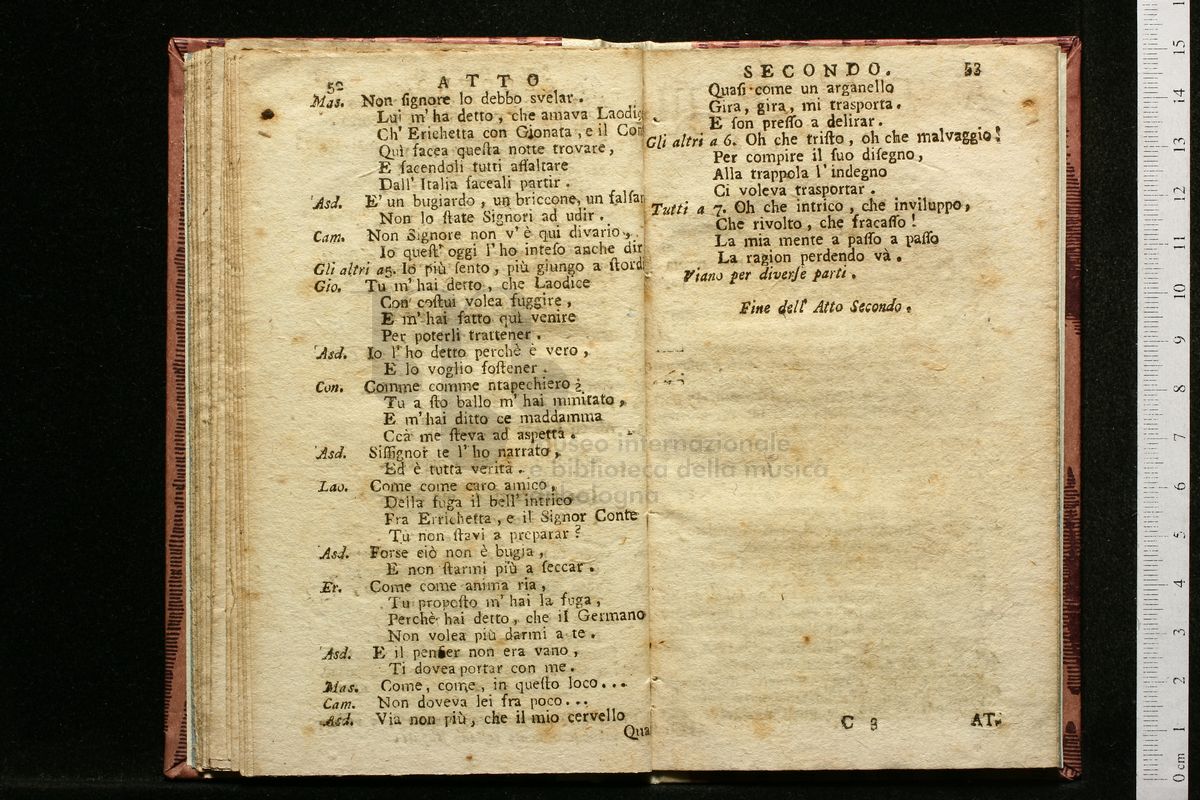 52
ATTO
Mas. Non ſignore lo debbo svelar.
Lui m'ha detto, che amava Laodic
Ch' Erichetta con Gionata, e il Con
Quì facea queſta notte trovare,
E facendoli tutti aſſaltare
Dall' Italia faceali partir.
Asd. E' un bugiardo, un briccone, un falſar
Non lo ſtate Signori ad udir.
Cam. Non Signore non v' è qui divario,
Io queſt' oggi l' ho inteſo anche dir
Gli altri a 5. Io più ſento, più giungo a ſtordi
Gio. Tu m' hai detto, che Laodice
Con coſtui volea fuggire,
E m' hai fatto quì venire
Per poterli trattener.
Asd. Io l' ho detto perchè è vero,
E lo voglio ſoſtener.
Con. Comme comme ntapechiero?
Tu a ſto ballo m' hai mmitato,
E m' hai ditto ce maddamma
Ccà me ſteva ad aspettà.
Asd. Siſſignor te l' ho narrato,
Ed è tutta verità.
Lao. Come come caro amico,
Della fuga il bell' intrico
Fra Errichetta, e il Signor Conte
Tu non ſtavi a preparar?
Asd. Forse ciò non è bugia,
E non ſtarmi più a ſeccar.
Er. Come come anima ria,
Tu propoſto m' hai la fuga,
Perchè hai detto, che il Germano
Non volea più darmi a te.
Asd. E il penſier non era vano,
Ti dovea portar con me.
Mas. Come, come, in queſto loco...
Cam. Non doveva lei fra poco...
Asd. Via non più, che il mio cervello
Qua
SECONDO.
53
Quaſi come un arganello
Gira, gira, mi trasporta.
E ſon preſſo a delirar.
Gli altri a 6. Oh che triſto, oh che malvaggio!
Per compire il ſuo diſegno,
Alla trappola l' indegno
Ci voleva trasportar.
Tutti a 7. Oh che intrico, che inviluppo,
Che rivolto, che fracaſſo!
La mia mente a paſſo a paſſo
La ragion perdendo và.
Viano per diverſe parti.
Fine dell' Atto Secondo.
C 3
AT-
museo internazionale
e biblioteca della musica
di bologna
15
14
13
12
11
10
9
8
7
6
5
4
3
2
1
0 cm